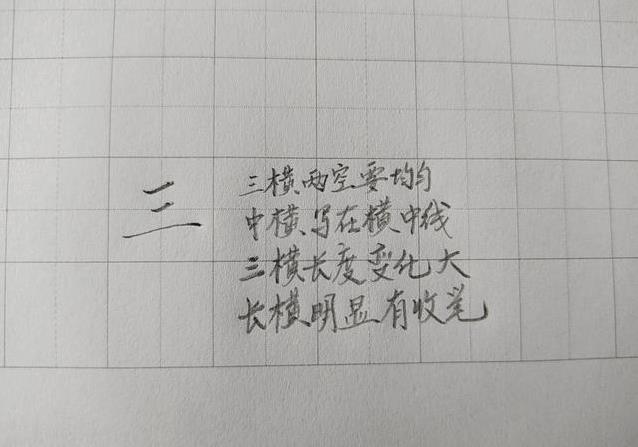 三
三横两空要均匀
中横写在横中线
三横长度变化大
长横明显有收笔